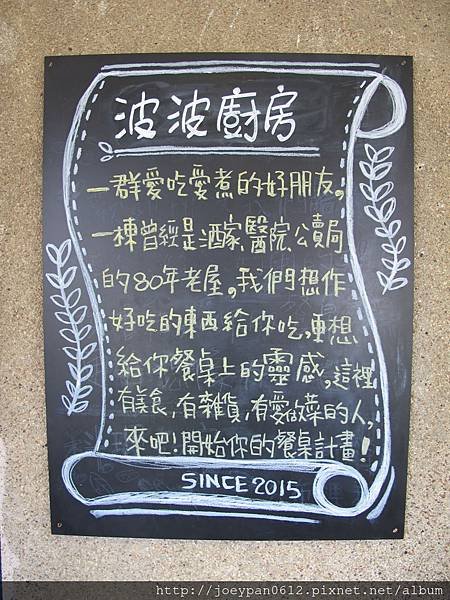 波波廚房
一群愛吃愛煮的好朋友。
一棟曾經是酒家、醫院、公賣局
的80年老屋。我們想作
好吃的東西給你吃,更想
給你餐桌上的靈感,這裡
有美食,有雜貨,有愛做菜的人,
來吧!開始你的餐桌計畫!
SINCE 2015
http://joeypan0612.pixnet.net/album